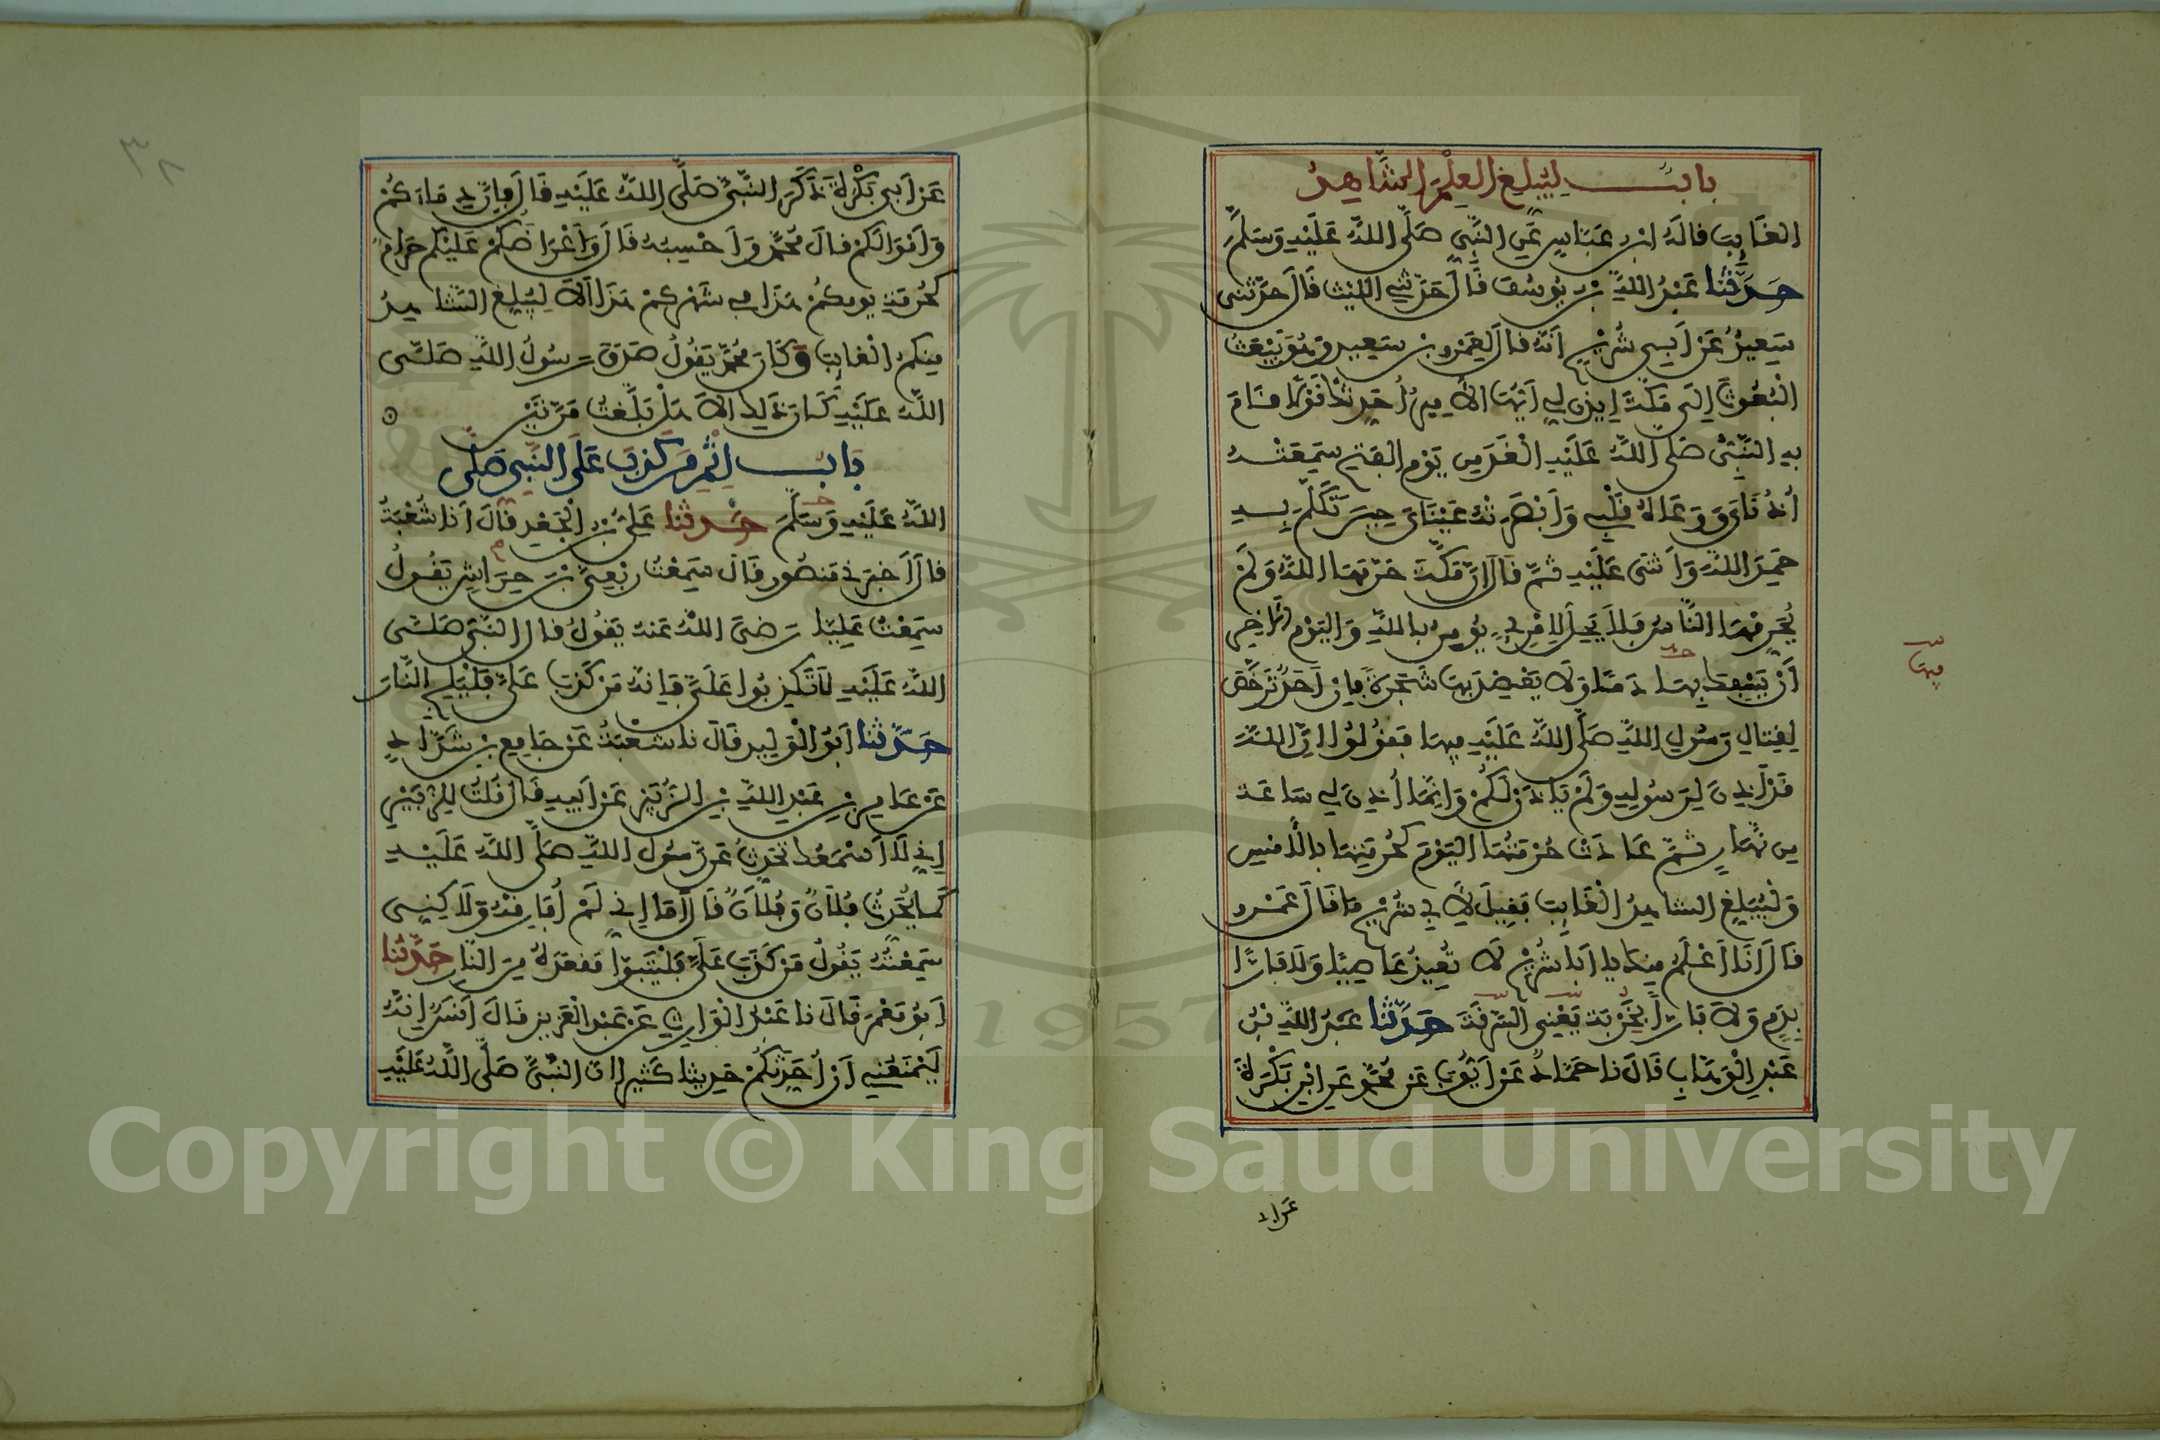 باب ليبلغ العلم الشاهد
الغايب قاله ابن عباس عن النبي صلى الله عليه وسلم
حدثنا عبد الله بن يوسف قال حدثني الليث قال حدثني
سعيد عن ابي شريح انه قال لعمرو بن سعيد وهو يبعث
البعوث الى مكة ايذن لي ايها الامير احدثك قولا قام
به النبي صلى الله عليه الغد من يوم الفتح سمعته
أذناي ووعاه قلبي وأبصرته عيناي حين تكلم به
حمد الله وأثنى عليه ثم قال ان مكة حرمها الله ولم
يحرمها الناس فلا يحل لامرئ يومن بالله واليوم الاخر
أن يسفك بها دما ولا يعضد بها شجرة فإن أحد ترخص
لقتال رسول الله صلى الله عليه فيها فقولوا إن الله
قد أذن لرسوله ولم ياذن لكم وإنما أذن لي ساعة
من نهار ثم عادت حرمتها اليوم كحرمتها بالأمس
وليبلغ الشاهد الغايب فقيل لأبي شريح ما قال عمرو
قال انا أعلم منك يا أبا شريح لا تعيذ عاصيا ولا فارا
بدم ولا فارا بخربة يعني السرقة حدثنا عبد الله بن
عبد الوهاب قال نا حماد عن أيوب عن محمد عن ابي بكرة
فيها
عن ابي
٣٨
عن أبي بكرة ذكر النبي صلى الله عليه قال فإن دماءكم
وأموالكم قال محمد وأحسبه قال وأعراضكم عليكم حرام
كحرمة يومكم هذا في شهركم هذا ألا ليبلغ الشاهد
منكم الغايب وكان محمد يقول صدق رسول الله صلى
الله عليه كان ذلك ألا هل بلغت مرتين
باب إثم من كذب على النبي صلى
الله عليه وسلم حدثنا علي بن الجعد قال أنا شعبة
قال أخبرني منصور قال سمعت ربعي بن حراش يقول
سمعت عليا رضي الله عنه يقول قال النبي صلى
الله عليه لا تكذبوا علي فإنه من كذب علي فليلج النار
حدثنا أبو الوليد قال نا شعبة عن جامع بن شداد
عن عامر بن عبد الله بن الزبير عن أبيه قال قلت للزبير
إني لا أسمعك تحدث عن رسول الله صلى الله عليه
كما يحدث فلان وفلان قال أما إني لم أفارقه ولاكني
سمعته يقول من كذب علي فليتبوأ مقعده من النار حدثنا
أبو معمر قال نا عبد الوارث عن عبد العزيز قال أنس إنه
ليمنعني أن أحدثكم حديثا كثيرا ان النبي صلى الله عليه
1957
Copyright © King Saud University